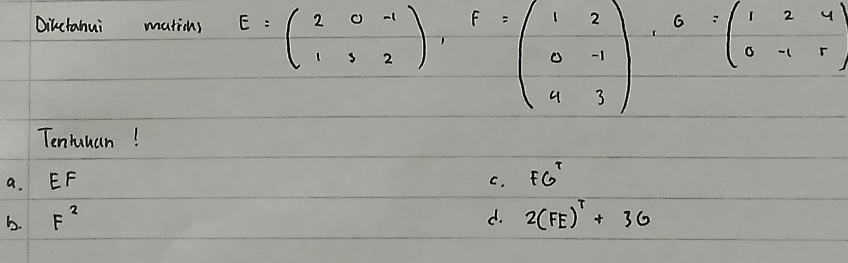 Diketahui matriks E = ( 2 0 -1 ; 1 3 2 ) , F = ( 1 2 ; 0 -1 ; 4 3 ) , G = ( 1 2 4 ; 0 -1 5 )
Tentukan !
a. EF c. FG^T
b. F^2 d. 2(FE)^T + 3G